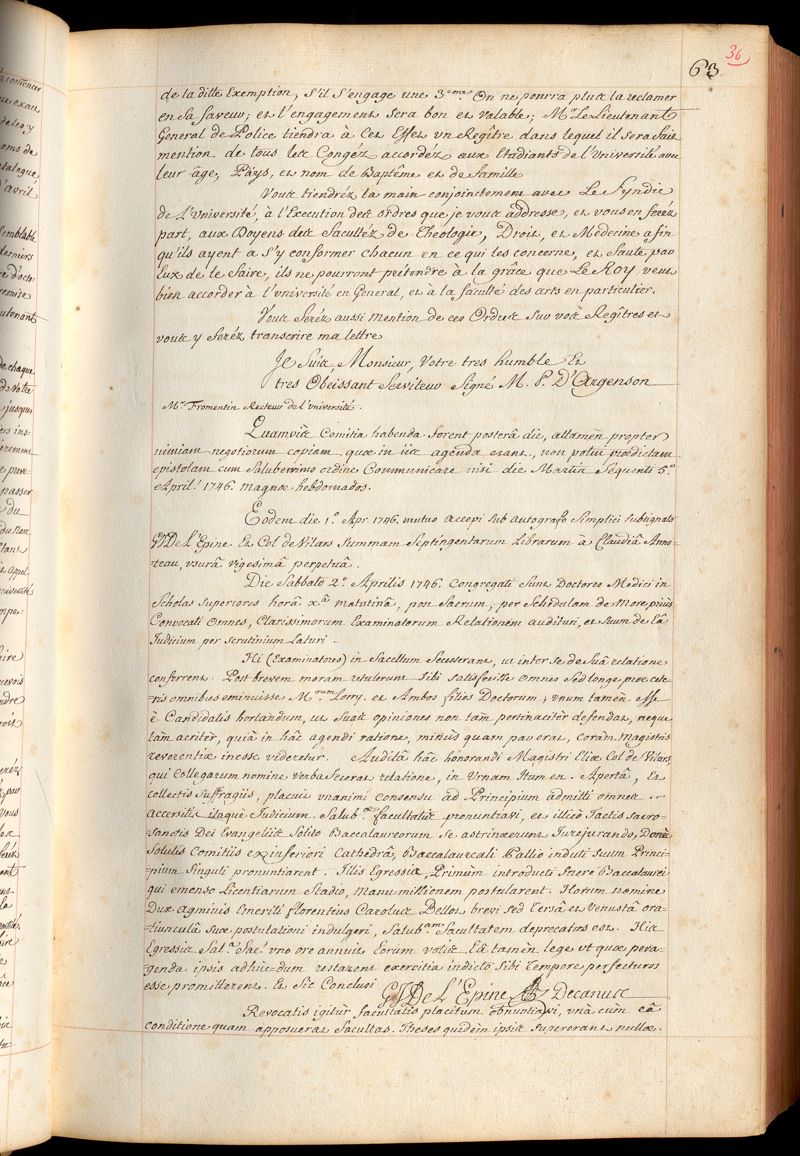 36
63
de la ditte Exemption, s'il s'engage une 3.eme On ne pourra plus la reclamer
en sa faveur; et l'engagement sera bon et valable; Mr Le Lieutenant
General de Police tiendra à Cet Effet un Regître dans lequel il sera fait
mention de tous les Congéz accordéz aux Etudiants de l'Université avec
leur âge, Païs, et nom de Baptême et de famille
Vous tiendréz la main conjoinctement avec Le Syndic
de L'Université, à l'Execution des ordres que je vous addresse, et vous en feréz
part, aux Doyens des facultéz de Théologie, Droit, et Médecine afin
qu'ils ayent a s'y conformer chacun en ce qui les concerne, et faute par
Eux de le faire, ils ne pourront prétendre à la grâce que Le Roy veut
bien accorder à l'université en General, et à la faculté des arts en particulier.
Vous feréz aussi mention de ces Ordres sur vos Regîtres et
vous y feréz transcrire ma lettre
Je suis, Monsieur, Votre tres humble Et
tres Obeissant Serviteur Signé M. P. D'Argenson
Mr Fromentin Recteur de l'université.
Quamvis Comitia habenda forent posterâ die, attamen propter
nimiam negotiorum copiam, quæ in iis agenda erant, non potui prædictam
epistolam cum Saluberrimo ordine Communicare nisi die Martis Sequenti 5.a
April.s 1746. magnæ hebdomados.
Eodem die 1.a Apr. 1746. mutuo accepi sub autografo simplici subsignato
GJ De L'Epine. Et Col de Vilars Summam Septingentarum Librarum à Claudiâ
teau, usurâ vigesimâ perpetuâ.
Die Sabbato 2.a Aprilis 1746. Congregati Sunt Doctores Medici in
Scholas Superiores horâ x.â matutinâ, post Sacrum, per Schedulam de More, prius
Convocati Omnes, Clarissimorum Examinatorum Relationem audituri, et suum de Eâ
Iudicium per scrutinium Laturi.
Hi (Examinatores) in Sacellum Secesserant, ut inter se de Suâ relatione
conferrent. Post brevem moram retulerunt sibi satisfecisse omnes Sed longe præ cæte-
ris omnibus eminuisse M. Lorry. et Ambos filios Doctorum; unum tamen esse
è Candidatis hortandum, ut suas opiniones non tam pertinaciter defendat, neque
tam acriter, quia in hâc agendi ratione, minus quam par erat, coram magistris
reverentiæ inesse videretur. Auditâ hâc honorandi Magistri Eliæ Col de Vilars
qui Collegarum nomine verba Fecerat relatione, in Urnam Itum est. Apertâ, Et
collectis Suffragiis, placuit unanimi consensu ad Principium admitti omnes.
accersitis itaque Judicium Salub. facultatis pronuntiavi, et illico Tactis Sacro-
Sanctis Dei Evangeliis Solito Baccalaureorum Se astrinxerunt Jurejurando, Donec
Solutis Comitiis ex inferiori Cathedrâ, Baccalaureali Pallio induti suum Princi-
pium Singuli pronuntiarent. Illis Egressis, Primum introducti fuere Baccalaurei
qui emenso Licentiarum Stadio, manumissionem postularent. Horum nomine
Dux agminis Emeriti Florentius Carolus Bellot brevi sed Tersâ et Venustâ ora-
tiunculâ suæ postulationi indulgeri, Salub.am Facultatem deprecatus est. His
Egressis Sal.a Fac. uno ore annuit Eorum votis Eâ tamen lege ut quæ pera-
genda ipsis adhuc-dum restarent exercitia indicto sibi Tempore perfecturos
esse promitterent. Et Sic Conclusi
GJ De L'Epine Decanus
Revocatis igitur facultatis placitum obnuntiavi, unâ cum eâ
conditione quam apposuerat facultas. Theses quidem ipsis supererant nullæ.